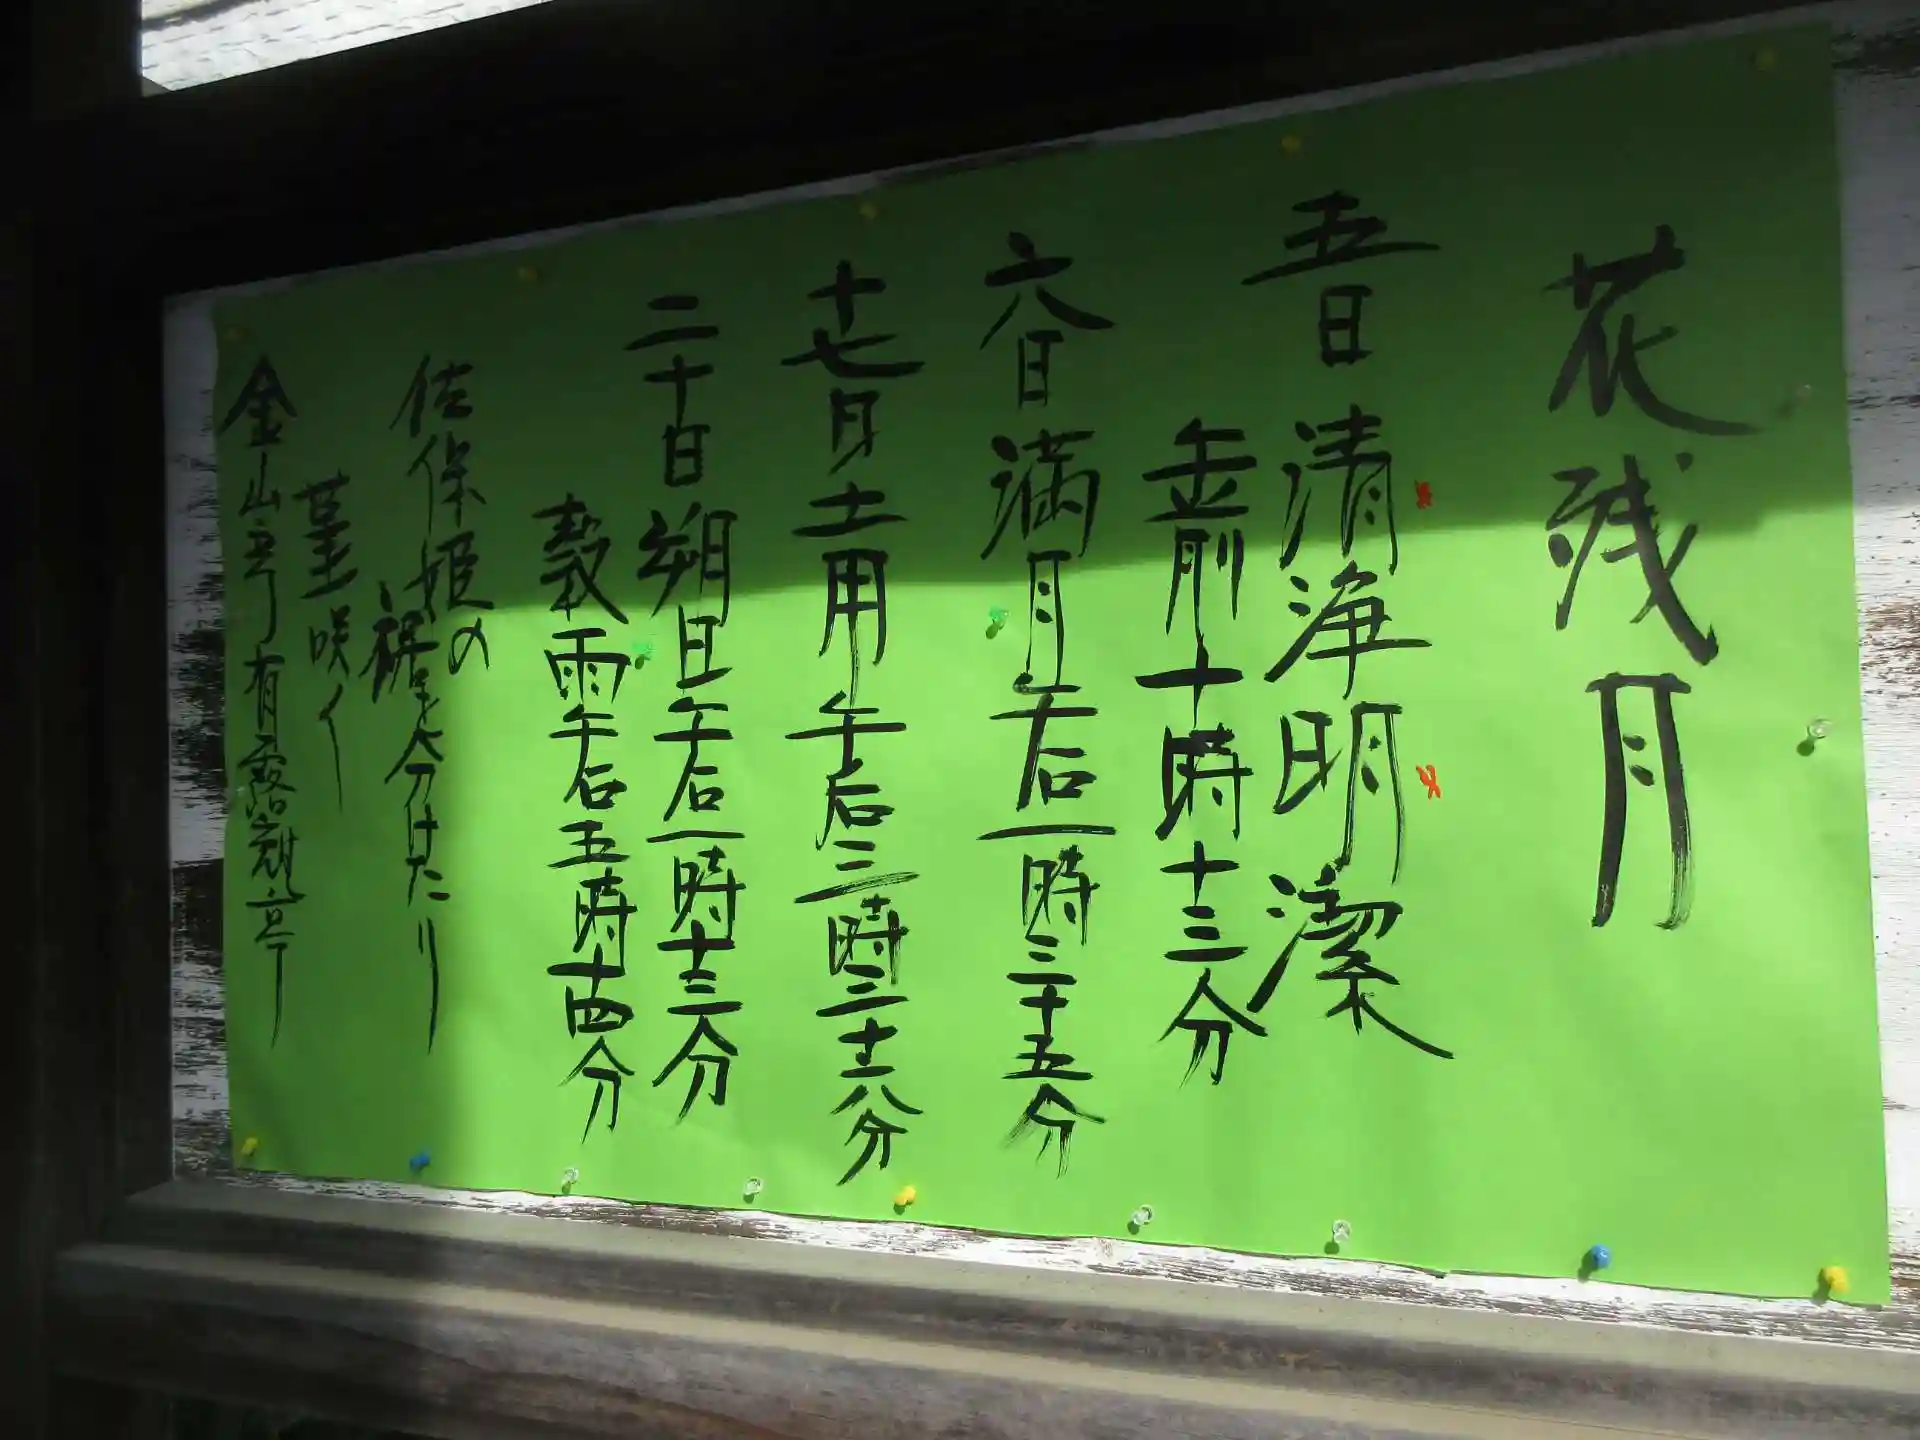 花残月
五日 清浄明潔
午前十時十三分
六日満月午后一時三十五分
十七日土用午后三時三十八分
二十日朔日午后一時十三分
穀雨午后五時十四分
佐保姫の
裾を分けたり
菫咲く
金山